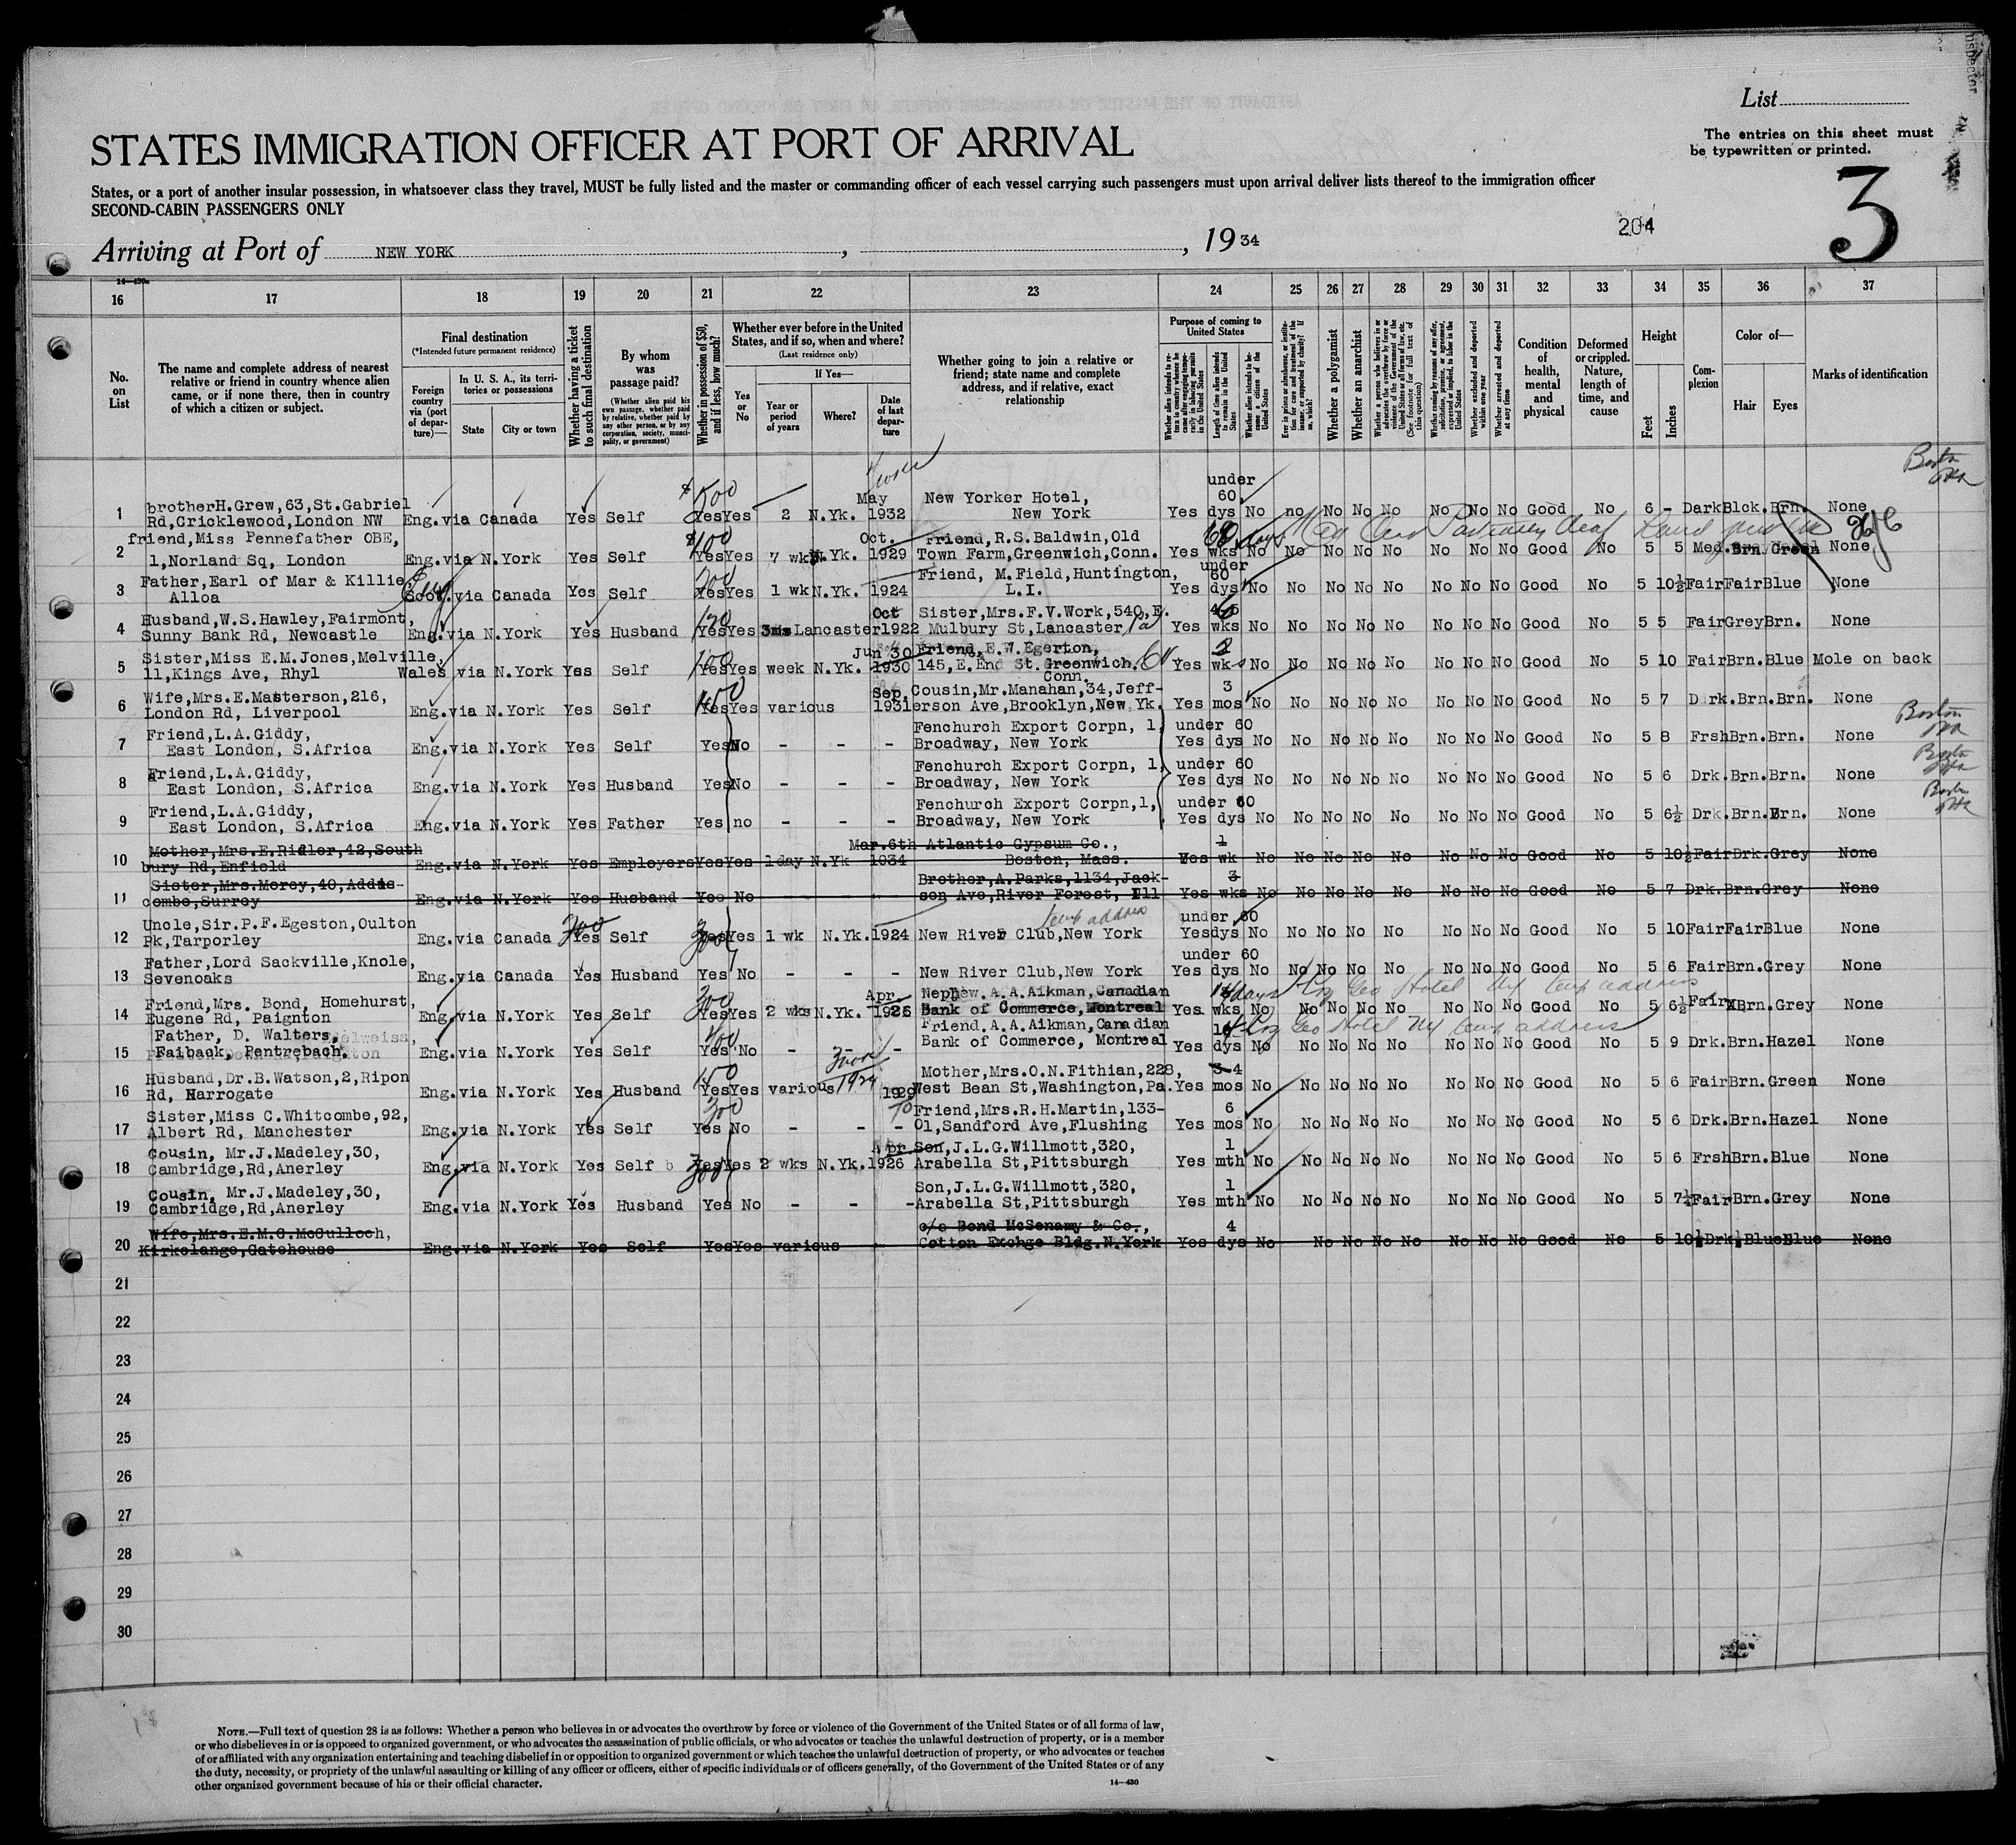 List
The entries on this sheet must
be typewritten or printed.
STATES IMMIGRATION OFFICER AT PORT OF ARRIVAL
3
States, or a port of another insular possession, in whatsoever class they travel, MUST be fully listed and the master or commanding officer of each vessel carrying such passengers must upon arrival deliver lists thereof to the immigration officer
SECOND-CABIN PASSENGERS ONLY
204
Arriving at Port of NEW YORK, , 19 34
16 17 18 19 20 21 22 23 24 25 26 27 28 29 30 31 32 33 34 35 36 37
No. on List
The name and complete address of nearest
relative or friend in country whence alien
came, or if none there, then in country
of which a citizen or subject.
Final destination
(*Intended future permanent residence)
Foreign country via (port of departure)—
In U. S. A., its territories or possessions
State
City or town
Whether having a ticket to such final destination
By whom was passage paid?
(Whether alien paid his own passage, whether paid by relative, whether paid by any other person, or by any corporation, society, municipality, or government)
Whether in possession of $50, and if less, how much?
Whether ever before in the United States, and if so, when and where?
(Last residence only)
Yes or No
If Yes—
Year or period of years
Where?
Date of last departure
Whether going to join a relative or
friend; state name and complete
address, and if relative, exact
relationship
Purpose of coming to United States
Length of time alien intends to remain in the United States
Whether alien intends to become a citizen of the United States
Whether a polygamist
Whether an anarchist
Whether excluded and deported within one year
Whether arrested and deported at any time
Condition of health, mental and physical
Deformed or crippled. Nature, length of time, and cause
Height
Feet
Inches
Complexion
Color of—
Hair
Eyes
Marks of identification
under
May New Yorker Hotel, 60
brother H.Grew,63,St.Gabriel
1 Rd,Cricklewood,London NW Eng.via Canada Yes Self Yes Yes 2 N.Yk. 1932 New York Yes dys No no No No No No No No Good No 6 - Dark Blck.Brn. None
friend,Miss Pennefather OBE, Oct. Friend,R.S.Baldwin,Old
2 1,Norland Sq, London Eng.via N.York Yes Self Yes Yes 7 wks N.Yk. 1929 Town Farm,Greenwich,Conn. Yes wks No No No No No No No No Good No 5 5 Med.Brn.Green None
Father,Earl of Mar & Killie, Friend, M.Field,Huntington, under 60
3 Alloa Scot.via Canada Yes Self Yes Yes 1 wk N.Yk. 1924 L.I. Yes dys No No No No No No No No Good No 5 10½ Fair Fair Blue None
Husband,W.S.Hawley,Fairmont, Oct Sister,Mrs.F.V.Work,540,E.
4 Sunny Bank Rd, Newcastle Eng.via N.York Yes Husband Yes Yes 3ms Lancaster 1922 Mulbury St,Lancaster Pa Yes wks No No No No No No No No Good No 5 5 Fair Grey Brn. None
Sister,Miss E.M.Jones,Melville, Jun 30 Friend,E.W.Egerton,
5 11,Kings Ave, Rhyl Wales via N.York Yes Self Yes Yes week N.Yk. 1930 145,E.End St.Greenwich. Yes wks No No No No No No No No Good No 5 10 Fair Brn.Blue Mole on back
Conn.
Wife,Mrs.E.Masterson,216, Sep. Cousin,Mr.Manahan,34,Jeff- 3
6 London Rd, Liverpool Eng.via N.York Yes Self Yes Yes various 1931 erson Ave,Brooklyn,New Yk. Yes mos No No No No No No No No Good No 5 7 Drk.Brn.Brn. None
Friend,L.A.Giddy, Fenchurch Export Corpn, 1, under 60
7 East London, S.Africa Eng.via N.York Yes Self Yes No - - - Broadway, New York Yes dys No No No No No No No No Good No 5 8 Frsh Brn.Brn. None
Friend,L.A.Giddy, Fenchurch Export Corpn, 1, under 60
8 East London, S.Africa Eng.via N.York Yes Husband Yes No - - - Broadway, New York Yes dys No No No No No No No No Good No 5 6 Drk.Brn.Brn. None
Friend,L.A.Giddy, Fenchurch Export Corpn,1, under 60
9 East London, S.Africa Eng.via N.York Yes Father Yes no - - - Broadway, New York Yes dys No No No No No No No No Good No 5 6½ Drk.Brn.Brn. None
Mother,Mrs.E.Ridler,42,South Mar.6th Atlantic Gypsum Co., 1
10 bury Rd,Enfield Eng.via N.York Yes Employers Yes Yes 1day N.Yk 1934 Boston, Mass. Yes wk No No No No No No No No Good No 5 10½ Fair Drk.Grey None
Sister,Mrs.Morey,40,Addis- Brother,A.Parks,1134,Jack- 3
11 combe,Surrey Eng.via N.York Yes Husband Yes No - - son Ave,River Forest, Ill Yes wks No No No No No No No No Good No 5 7 Drk.Brn.Grey None
Uncle,Sir.P.F.Egeston,Oulton temp address under 60
12 Pk,Tarporley Eng.via Canada Yes Self Yes Yes 1 wk N.Yk. 1924 New River Club,New York Yes dys No No No No No No No No Good No 5 10 Fair Fair Blue None
Father,Lord Sackville,Knole, under 60
13 Sevenoaks Eng.via Canada Yes Husband Yes No - - - New River Club,New York Yes dys No No No No No No No No Good No 5 6 Fair Brn.Grey None
Friend,Mrs. Bond, Homehurst, Apr. Nephew. A.A.Aikman,Canadian
14 Eugene Rd, Paignton Eng.via N.York Yes Self Yes Yes 2 wks N.Yk. 1926 Bank of Commerce,Montreal Yes wks No No No No No No No No Good No 5 6½ Fair Brn.Grey None
Father, D. Walters, Friend,A.A.Aikman,Canadian
15 Faiback, Pentrebach. Eng.via N.York Yes Self Yes No - - - Bank of Commerce, Montreal Yes dys No No No No No No No No Good No 5 9 Drk.Brn.Hazel None
Husband,Dr.B.Watson,2,Ripon Mother,Mrs.O.N.Fithian,228, 3-4
16 Rd, Harrogate Eng.via N.York Yes Husband Yes Yes various 1929 West Bean St,Washington,Pa. Yes mos No No No No No No No No Good No 5 6 Fair Brn.Green None
Sister,Miss C.Whitcombe,92, Friend,Mrs.R.H.Martin,133- 6
17 Albert Rd, Manchester Eng.via N.York Yes Self Yes No - - - 01,Sandford Ave,Flushing Yes mos No No No No No No No No Good No 5 6 Drk.Brn.Hazel None
Cousin, Mr.J.Madeley,30, Apr. Son,J.L.G.Willmott,320, 1
18 Cambridge,Rd,Anerley Eng.via N.York Yes Self Yes Yes 2 wks N.Yk. 1926 Arabella St,Pittsburgh Yes mth No No No No No No No No Good No 5 6 Frsh Brn.Blue None
Cousin, Mr.J.Madeley,30, Son,J.L.G.Willmott,320, 1
19 Cambridge,Rd,Anerley Eng.via N.York Yes Husband Yes No - - - Arabella St,Pittsburgh Yes mth No No No No No No No No Good No 5 7½ Fair Brn.Grey None
Wife,Mrs.E.M.C.McCulloch, c/o Bond McSenamy & Co., 4
20 Kirkclange,Gatehouse Eng.via N.York Yes Self Yes Yes various - Cotton Exchge Bldg.N.York Yes dys No No No No No No No No Good No 5 10½ Drk. Blue None
21
22
23
24
25
26
27
28
29
30
NOTE.—Full text of question 28 is as follows: Whether a person who believes in or advocates the overthrow by force or violence of the Government of the United States or of all forms of law,
or who disbelieves in or is opposed to organized government, or who advocates the assassination of public officials, or who advocates or teaches the unlawful destruction of property, or is a member
of or affiliated with any organization entertaining and teaching disbelief in or opposition to organized government or which teaches the unlawful destruction of property, or who advocates or teaches
the duty, necessity, or propriety of the unlawful assaulting or killing of any officer or officers, either of specific individuals or of officers generally, of the Government of the United States or of any
other organized government because of his or their official character.
14—430